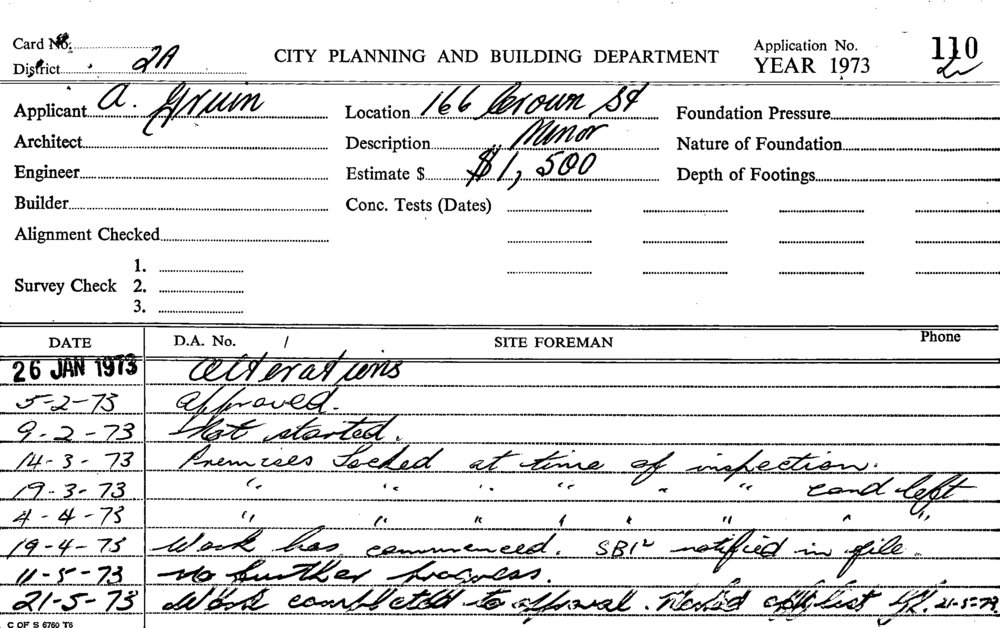 Card No. CITY PLANNING AND BUILDING DEPARTMENT Application No. 110
District 2A YEAR 1973 2
Applicant A. Gruin Location 166 Crown St Foundation Pressure
Architect Description Minor Nature of Foundation
Engineer Estimate $ $1,500 Depth of Footings
Builder Conc. Tests (Dates)
Alignment Checked
1.
Survey Check 2.
3.
DATE D.A. No. / SITE FOREMAN Phone
26 JAN 1973 Alterations
5-2-73 Approved.
9-2-73 Not started.
14-3-73 Premises Locked at time of inspection.
19-3-73 " " " " " " card left
4-4-73 " " " " " " " "
19-4-73 Work has commenced. SBI notified in file.
11-5-73 No further progress.
21-5-73 Work completed to approval. list 21-5-73.
C OF S 6760 T6